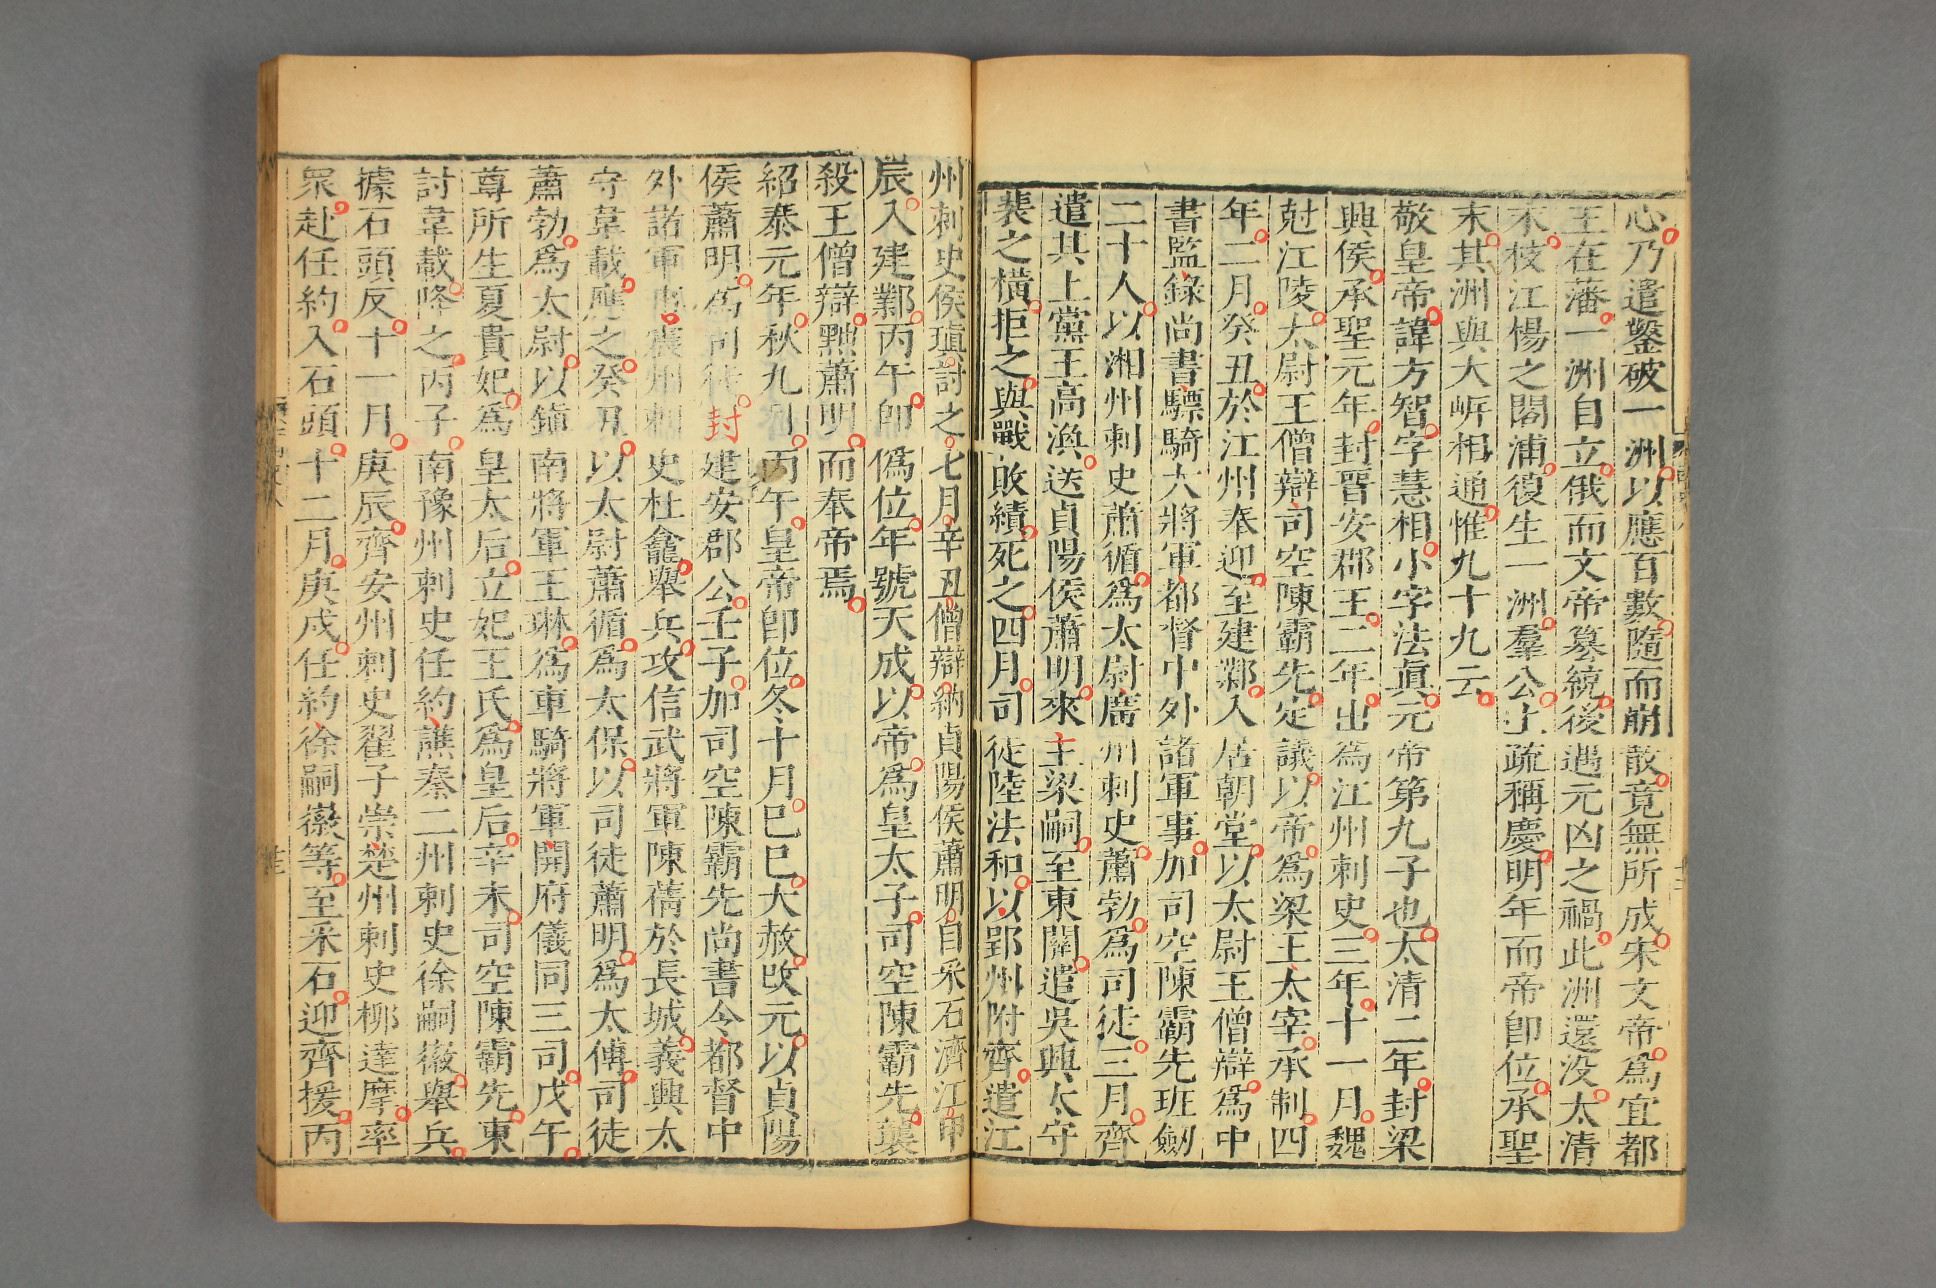 心乃遣鑿破一洲以應百數隨而崩散竟無所成宋文帝爲宜都
王在藩一洲自立俄而文帝纂統後遇元凶之禍此洲還没太清
末枝江楊之閣浦復生一洲羣公上疏稱慶明年而帝卽位承聖
末其洲與大㟁相通惟九十九云
敬皇帝諱方智字慧相小字法眞元帝第九子也太清二年封梁
興侯承聖元年封晉安郡王二年出爲江州刺史三年十一月魏
尅江陵太尉王僧辯司空陳霸先定議以帝爲梁王太宰承制四
年二月癸丑於江州奉迎至建鄴入居朝堂以太尉王僧辯爲中
書監錄尚書驃騎大將軍都督中外諸軍事加司空陳霸先班劒
二十人以湘州刺史蕭循爲太尉廣州刺史蕭勃爲司徒三月齊
遣其上黨王高渙送貞陽侯蕭明來主梁嗣至東關遣吳興太守
裴之橫拒之與戰敗績死之四月司徒陸法和以郢州附齊遣江
州刺史侯瑱討之七月辛丑僧辯納貞陽侯蕭明自采石濟江甲
辰入建鄴丙午卽僞位年號天成以帝爲皇太子司空陳霸先襲
殺王僧辯黜蕭明而奉帝焉
紹泰元年秋九月丙午皇帝卽位冬十月巳巳大赦改元以貞陽
侯蕭明爲司徒封建安郡公壬子加司空陳霸先尚書令都督中
外諸軍事震州刺史杜龕舉兵攻信武將軍陳蒨於長城義興太
守韋載應之癸丑以太尉蕭循爲太保以司徒蕭明爲太傅司徒
蕭勃爲太尉以鎮南將軍王琳爲車騎將軍開府儀同三司戊午
尊所生夏貴妃爲皇太后立妃王氏爲皇后辛未司空陳霸先東
討韋載降之丙子南豫州刺史任約譙秦二州刺史徐嗣徽舉兵
據石頭反十一月庚辰齊安州刺史翟子崇楚州刺史柳達摩率
衆赴任約入石頭十二月庚戌任約徐嗣徽等至采石迎齊援丙